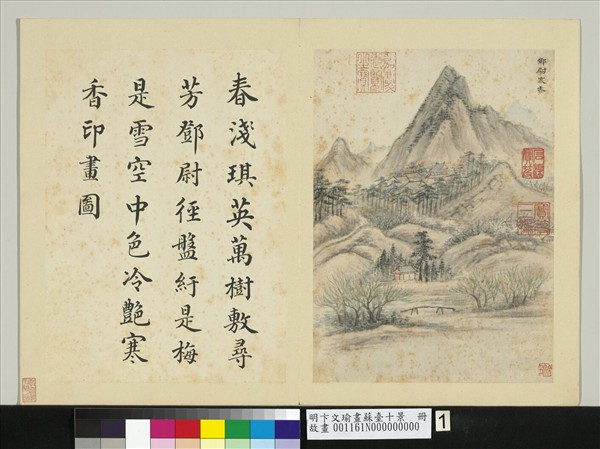 鄧尉文杏
春淺琪英萬樹敷尋
芳鄧尉徑盤紆是梅
是雪空中色冷艷寒
香印畫圖
明卞文瑜畫蘇臺十景 冊
故畫 001161N000000000
1